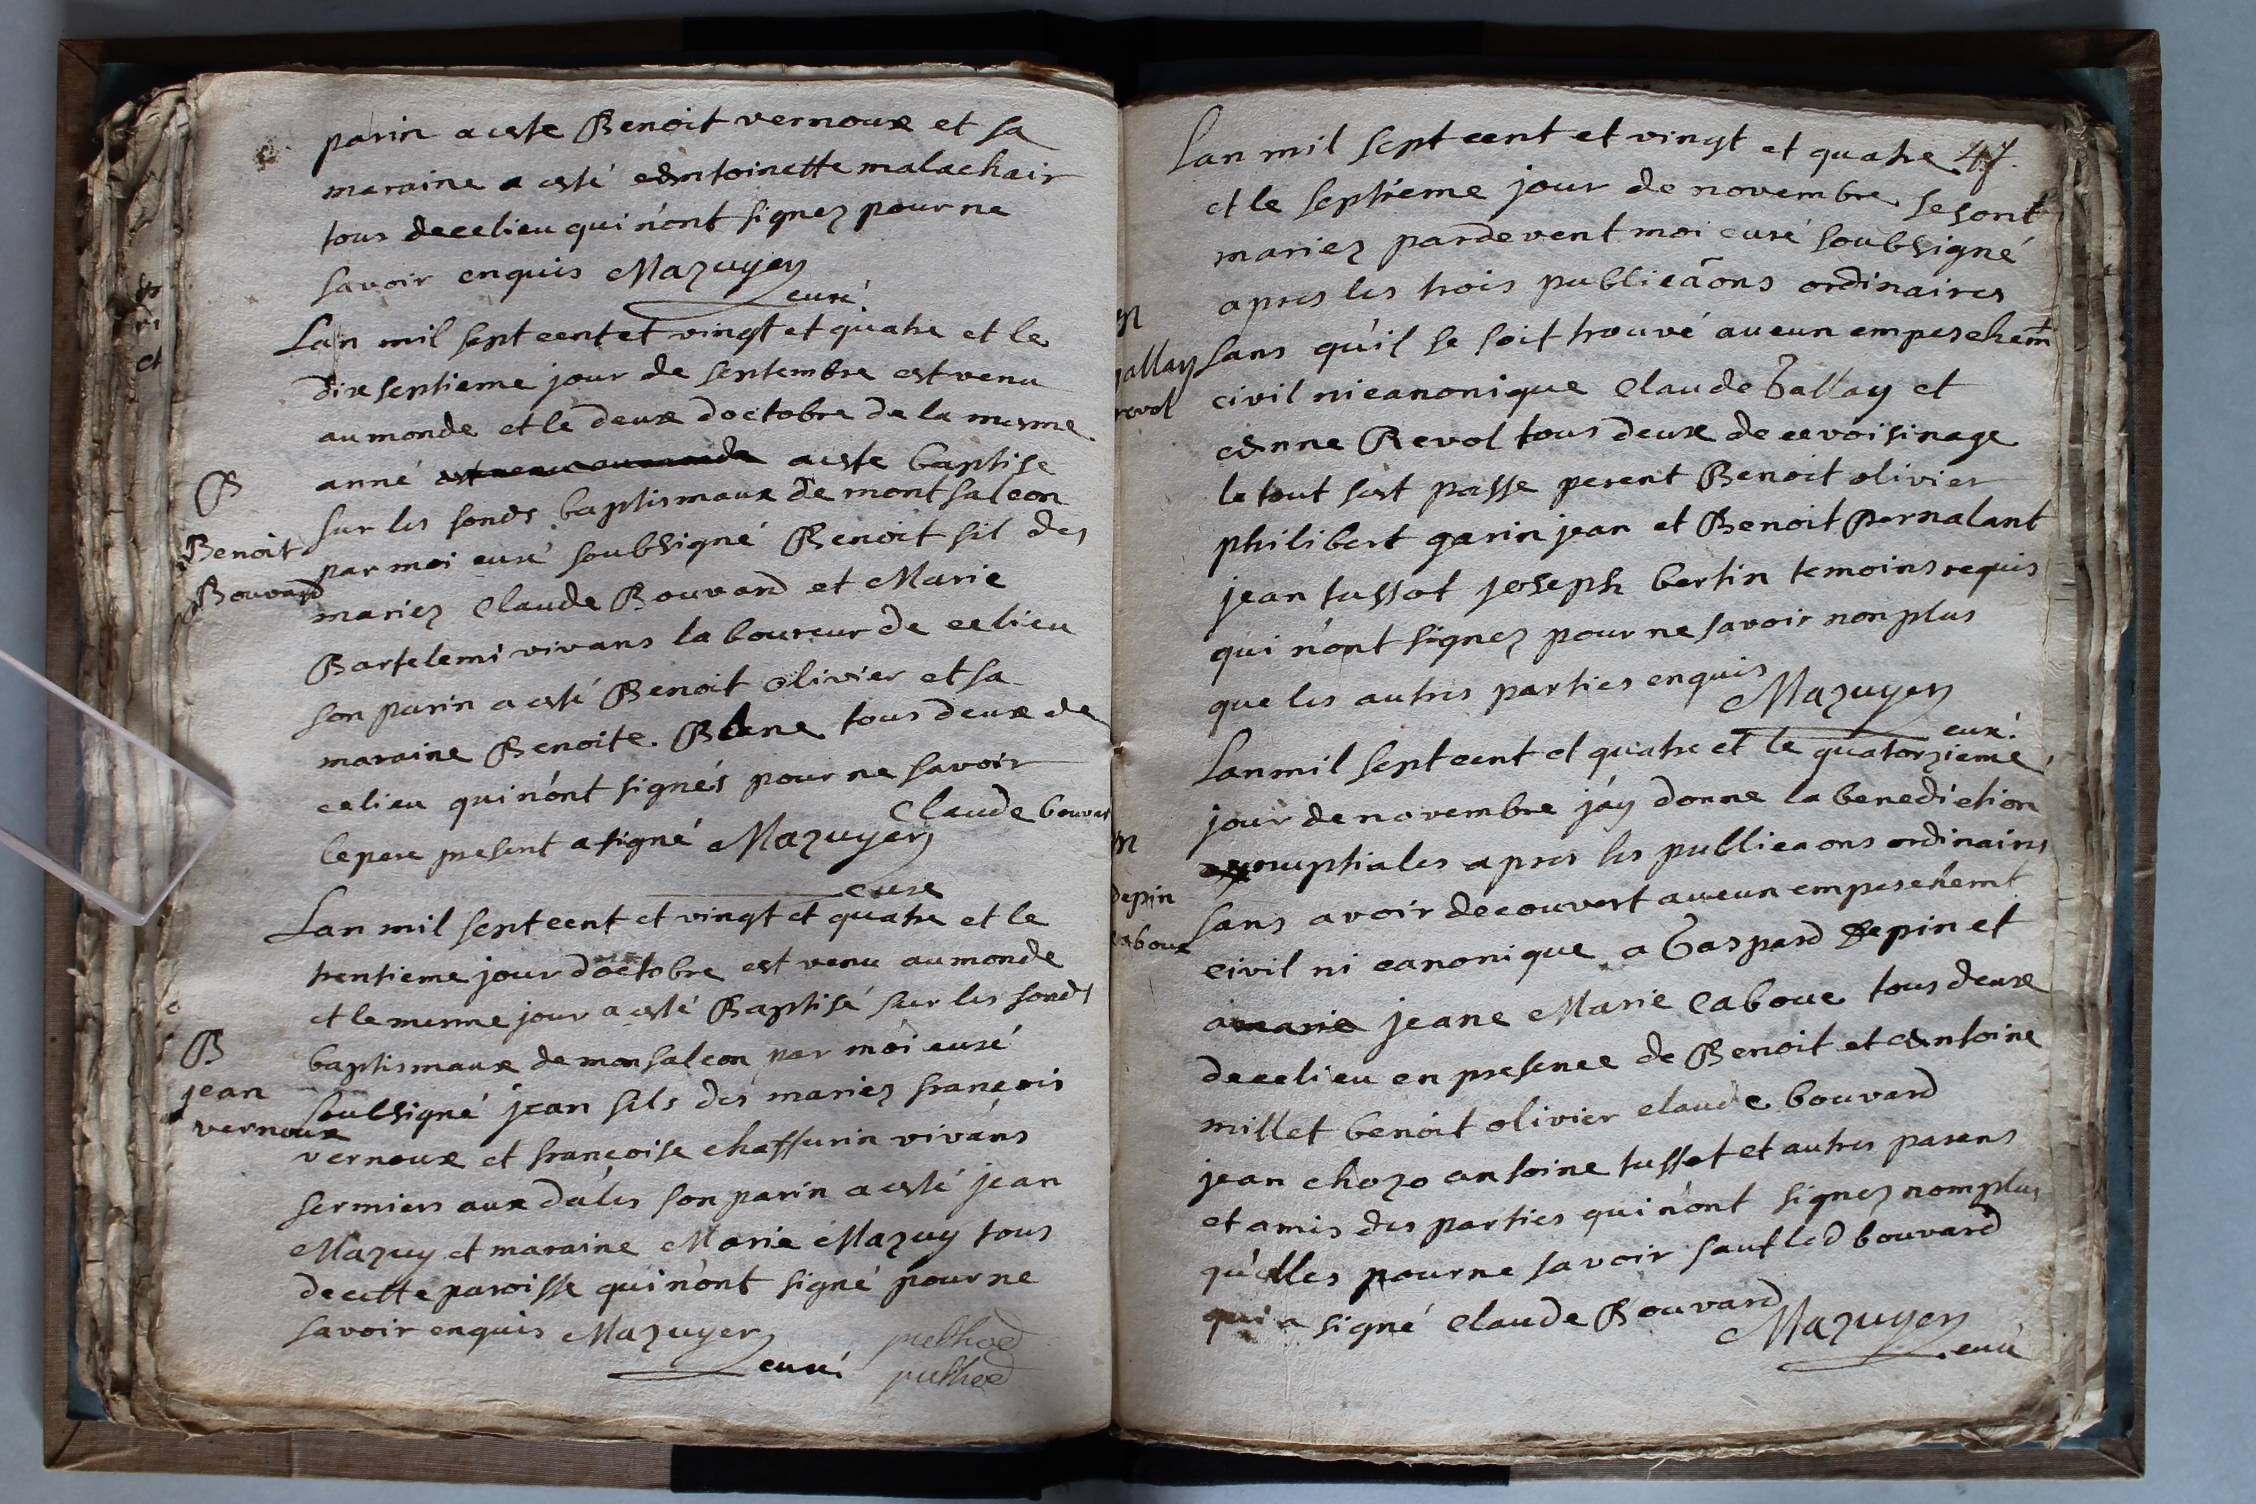 parin a este Benoit vernoux et sa
maraine a esté Antoinette malachair
tous decelieu qui n'ont signez pour ne
savoir enquis Mazuyer
curé
Lan mil sept cent et vingt et quatre et le
dix septieme jour de septembre est venu
au monde et le deux doctobre de la mesme
anné est venu au monde a este baptise
sur les fonds baptismaux de montsalcon
par moi curé soubsigné Benoit fil des
mariez Claude Bouvard et Marie
Bartelemi vivans laboureur de celieu
son parin a esté Benoit olivier et sa
maraine Benoite Blane tous deux de
celieu qui n'ont signés pour ne savoir
Claude bouvar
le pere present a signé Mazuyer
cure
Lan mil sept cent et vingt et quatre et le
trentieme jour doctobre est venu au monde
et le mesme jour a esté Baptisé sur les fonds
baptismaux de monsalcon par moi curé
soubsigné jean fils des mariez françois
vernoux et françoise chassurin vivans
fermiers aux dales son parin a esté jean
Mazuy et maraine Marie Mazuy tous
de cette paroisse qui n'ont signé pour ne
savoir enquis Mazuyer
curé
B
Benoit
Bouvard
B
jean
vernoux
47.
Lan mil sept cent et vingt et quatre
et le septieme jour de novembre se sont
mariez pardevent moi curé soubsigné
apres les trois publicãons ordinaires
sans qu'il se soit trouvé aucun empeschemt
civil ni canonique Claude Gallay et
Anne Revol tous deux de ce voisinage
le tout fut passe present Benoit olivier
philibert garin jean et Benoit Pernalant
jean tussot joseph bertin temoins requis
qui n'ont signez pour ne savoir non plus
que les autres parties enquis
Mazuyer
curé.
Lan mil sept cent et quatre et le quatorzieme
jour de novembre j'ay donne la benediction
nuptiales apres les publicaons ordinaires
sans avoir decouvert aucun empeschemt
civil ni canonique a Gaspard Depin et
a marie jeane Marie Caboue tous deux
decelieu en presence de Benoit et Antoine
millet benoit olivier claude bouvard
jean chozo antoine tusset et autres parens
et amis des parties qui n'ont signez nomplus
qu'elles pour ne savoir sauf led bouvard
qui a signé Claude Bouvard
Mazuyer
curé
m
gallay
revol
m
depin
caboue